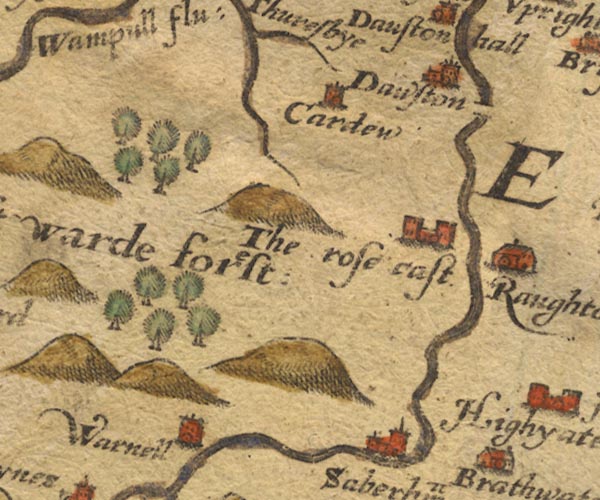 Wampull flu:
Thuresbye
Dauston hall
Vpright
Dauston
Cardew
E
warde forest:
The rose cast
Raughto
Highyate
Warnell
Brathwa